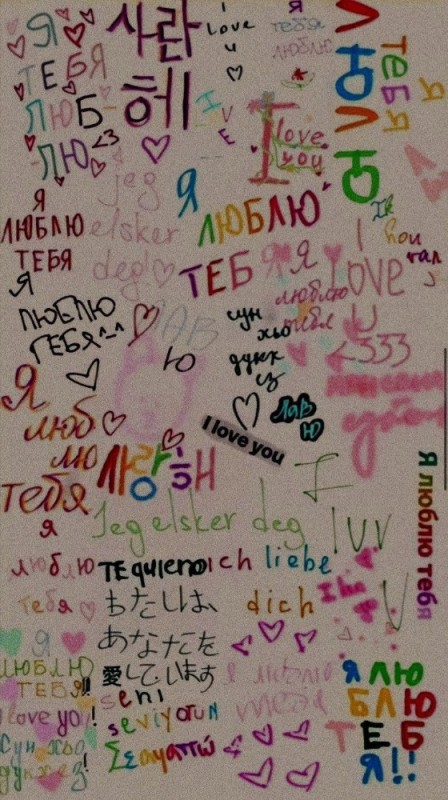 Я
ТЕБЯ
ЛЮБ-
-ЛЮ <3
사랑
해
I
love
u
Я
тебя
люблю
I
love
you
Л
Ю
Л
Ю
тебя
Я
Я
ЛЮБЛЮ
ТЕБЯ
jeg
elsker
deg!
Я
ЛЮБЛЮ
ТЕБЯ
Я
ЛЮБЛЮ
ТЕБЯ^-^
I
LOVE
U
Я
люблю
тебя
сун
хьо
дукх
ез
ЛАВ
Ю
<333
Я
люб
лю
тебя
사랑해
лав
ю
I love you
Я люблю тебя
Jeg elsker deg
I
luv
U
я
люблю
тебя
TE quiero
ich liebe
dich
わたしは、
あなたを
愛しています
seni
seviyorum
Σε αγαπώ
Я
ЛЮБЛЮ
ТЕБЯ!!
I love you!
Сун хьо
дукхез!
Я люблю
тебя
Я ЛЮ
БЛЮ
ТЕБ
Я!!